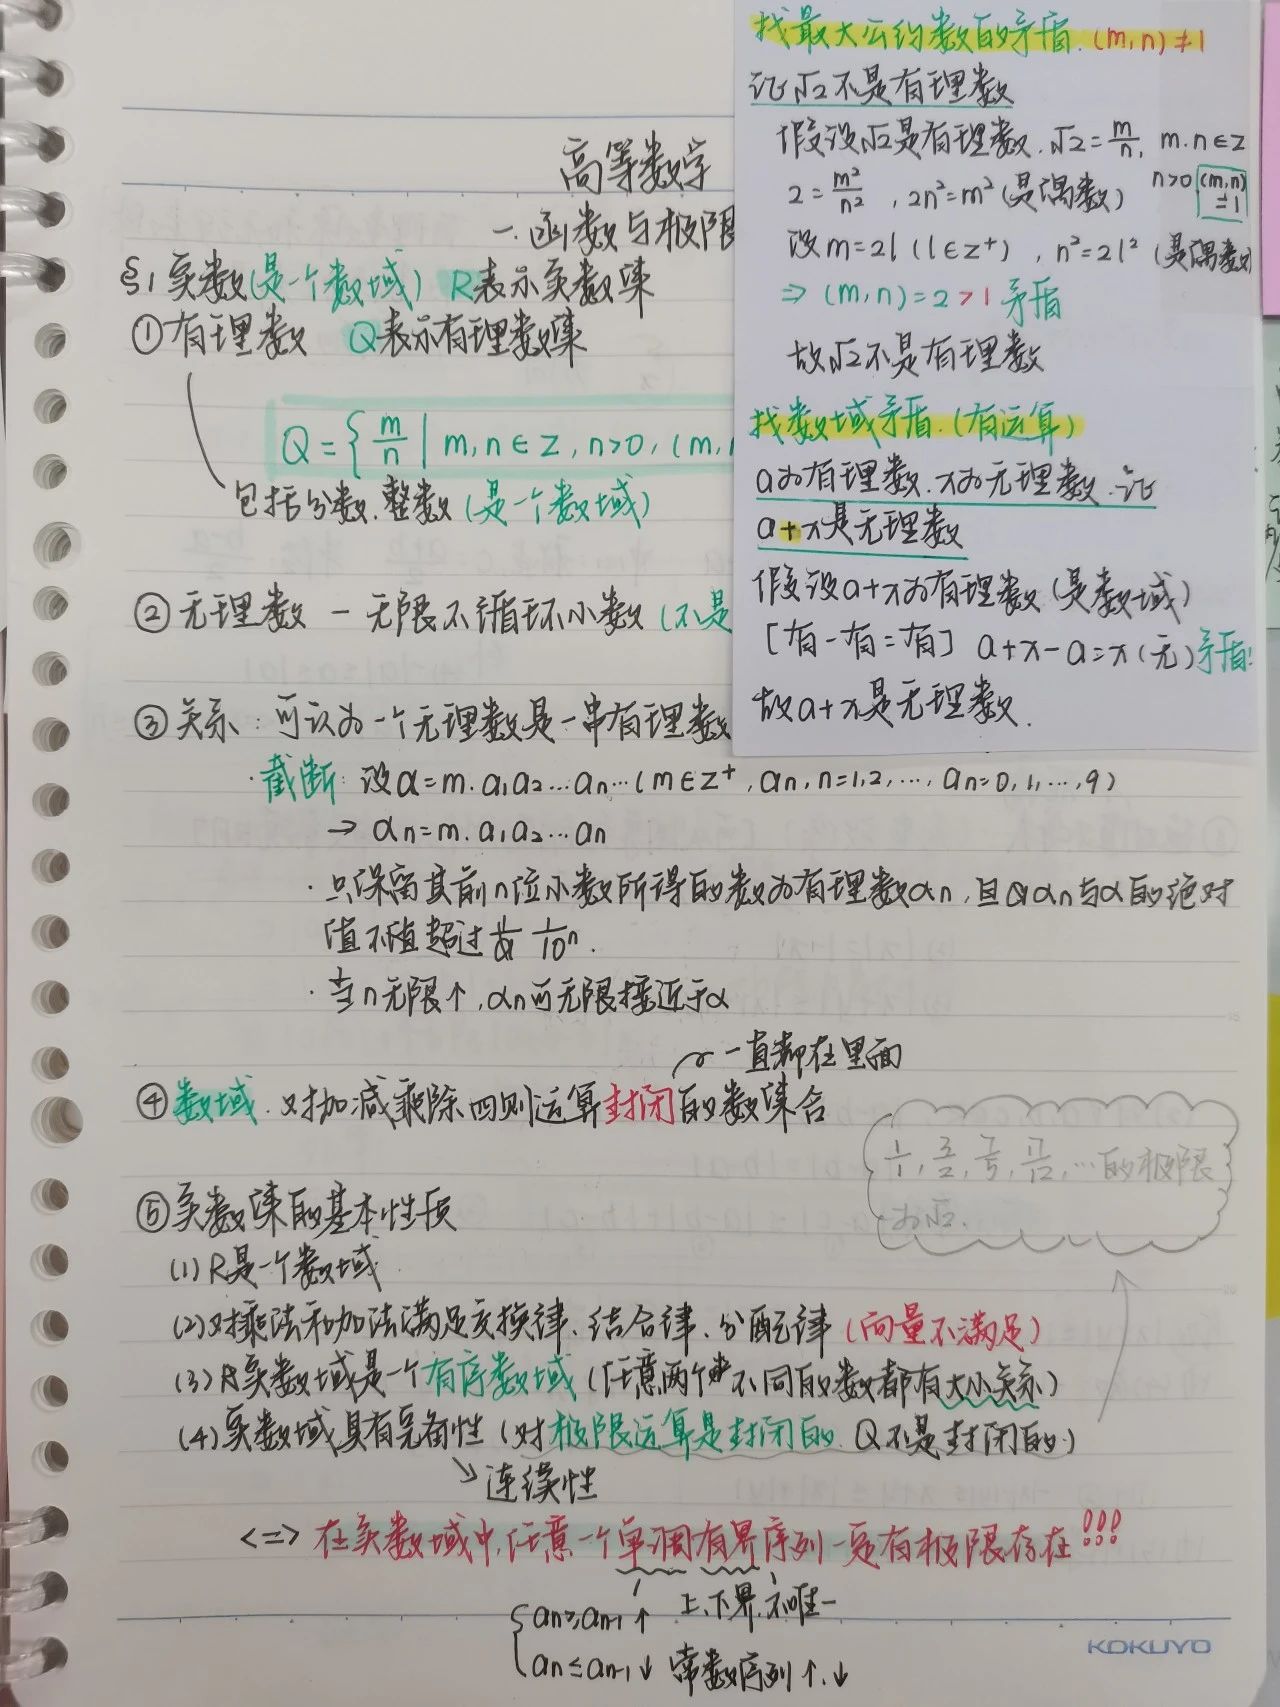 高等数学
一.函数与极限
§1 实数(是一个数域) R表示实数集
①有理数 Q表示有理数集
Q={m/n | m,n∈Z,n>0,(m,
包括分数.整数(是一个数域)
②无理数 — 无限不循环小数(不是
③关系:可认为一个无理数是一串有理数
·截断:设α=m.a₁a₂…aₙ…(m∈Z⁺,aₙ,n=1,2,…,aₙ=0,1,…,9)
→ αₙ=m.a₁a₂…aₙ
·只保留其前n位小数所得的数为有理数αₙ,且αₙ与α的绝对
值不超过 1/10ⁿ.
·当n无限↑,αₙ可无限接近于α
一直都在里面
④数域.对加减乘除四则运算封闭的数集合
1/1,3/2,7/5,17/12,…的极限
为√2.
⑤实数集的基本性质
(1)R是一个数域
(2)对乘法和加法满足交换律.结合律.分配律(向量不满足)
(3)实数域是一个有序数域(任意两个不同的数都有大小关系)
(4)实数域具有完备性(对极限运算是封闭的.Q不是封闭的)
↘连续性
<=> 在实数域中,任意一个单调有界序列一定有极限存在!!!
上、下界.不唯一
{aₙ≥aₙ₋₁↑
aₙ≤aₙ₋₁↓ 常数序列↑.↓
KOKUYO
找最大公约数的矛盾.(m,n)≠1
证√2不是有理数
假设√2是有理数.√2=m/n, m.n∈Z
n>0 (m,n)=1
2=m²/n² ,2n²=m²(是偶数)
设m=2l(l∈Z⁺) ,n²=2l²(是偶数)
⇒(m,n)=2>1 矛盾
故√2不是有理数
找数域矛盾.(有运算)
a为有理数.x为无理数.证
a+x是无理数
假设a+x为有理数(是数域)
[有-有=有] a+x-a=x(无)矛盾!
故a+x是无理数.